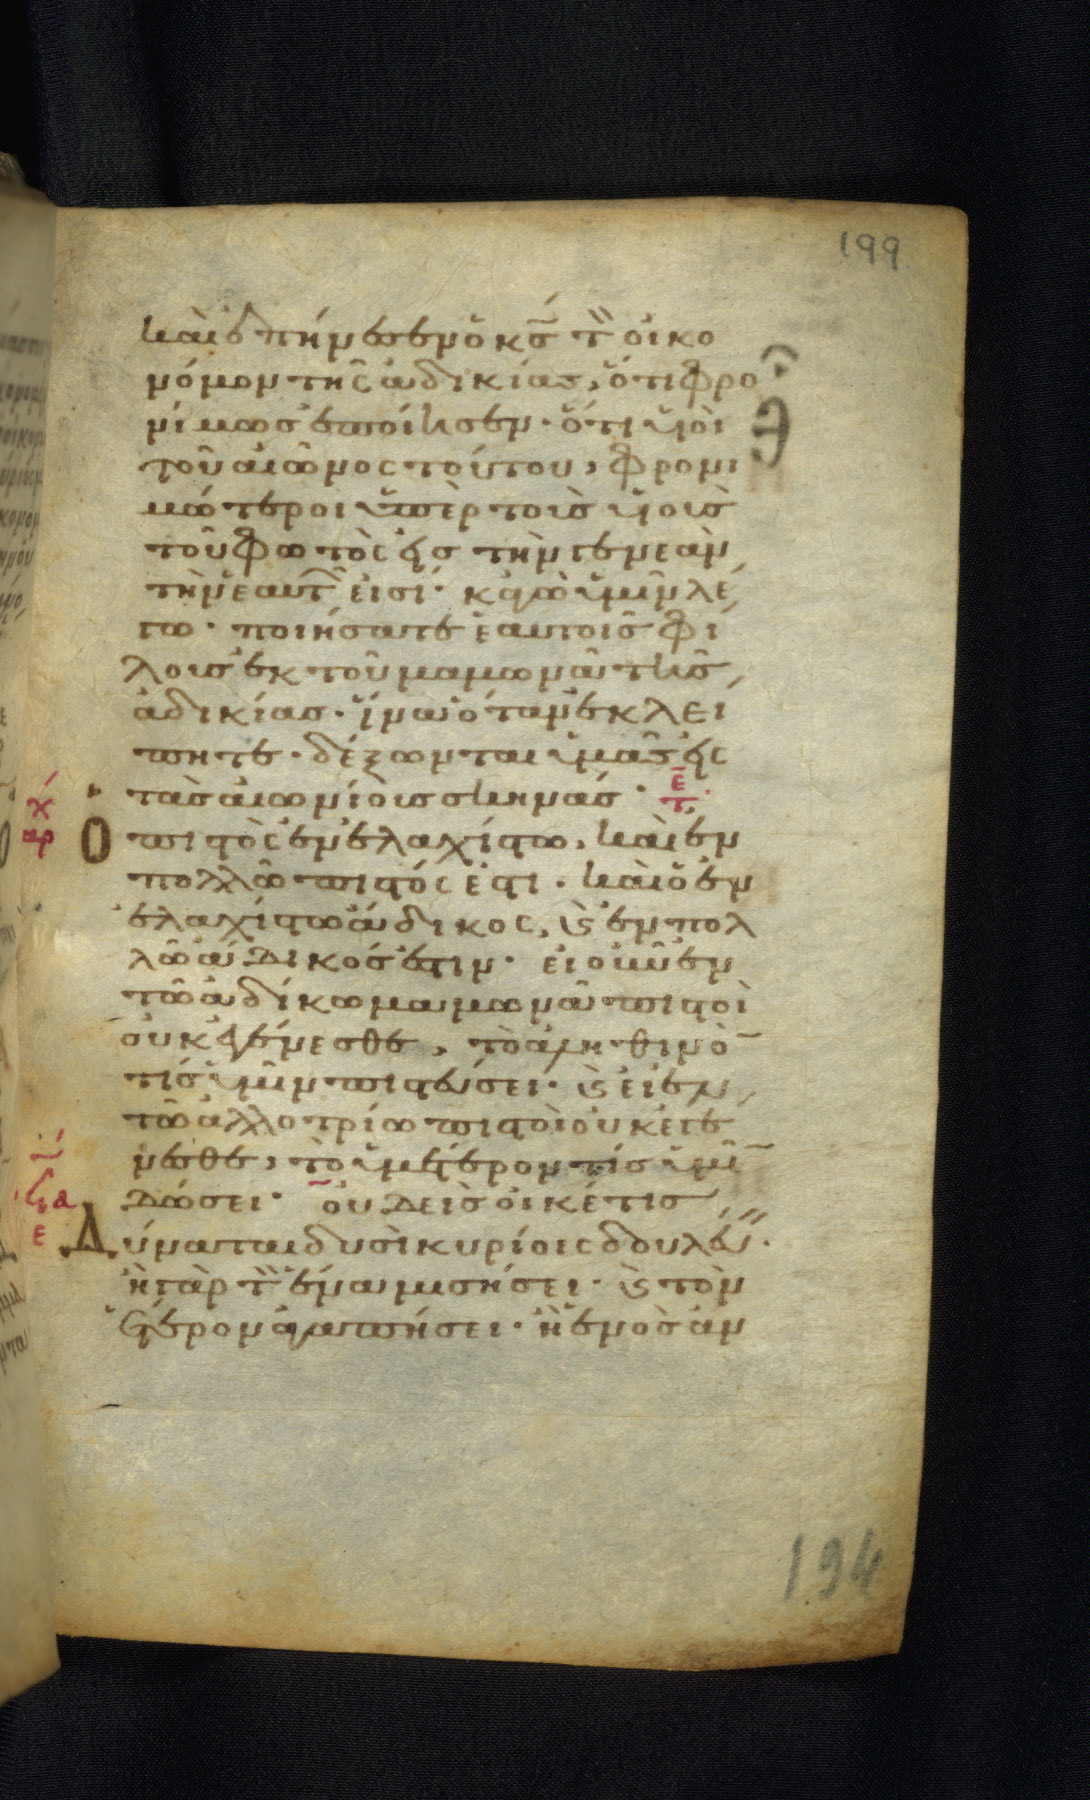 199
καὶ ἐπήνεσεν ὁ κ̅ς̅ τὸν οἰκο
νόμον τῆς ἀδικίας, ὅτι φρο
νίμως ἐποίησεν· ὅτι ὑιοὶ
τοῦ αἰῶνος τούτου, φρονι
μώτεροι ὑπὲρ τοὺς ὑιοὺς
τοῦ φωτὸς εἰς τὴν γενεὰν
τὴν ἑαυτῶν εἰσί· κἀγὼ ὑμῖν λέ
γω· ποιήσατε ἑαυτοῖς φί
λους ἐκ τοῦ μαμωνᾶ τῆς
ἀδικίας· ἵνα ὅταν ἐκλεί
πητε· δέξωνται ὑμᾶς εἰς
τὰς αἰωνίους σκηνάς·
Ὁ πιστὸς ἐν ἐλαχίστω, καὶ ἐν
πολλῶ πιστός ἐστι· καὶ ὁ ἐν
ἐλαχίστω ἄδικος, ϗ ἐν πολ
λῶ ἄδικός ἐστιν· εἰ οὖν ἐν
τῶ ἀδίκω μαμωνᾶ πιστοὶ
οὐκ ἐγένεσθε, τὸ ἀληθινὸ̅
τίς ὑμῖν πιστεύσει· ϗ εἰ ἐν
τῶ ἀλλοτρίω πιστοὶ οὐκ ἐγέ
νεσθε, τὸ ὑμέτερον τίς ὑμῖ̅
δώσει· οὐδεὶς οἰκέτης
Δύναται δυσὶ κυρίοις δουλεύειν·
ἢ γὰρ τὸν ἕνα μισήσει· ϗ τὸν
ἕτερον ἀγαπήσει· ἢ ἑνὸς ἀν
194